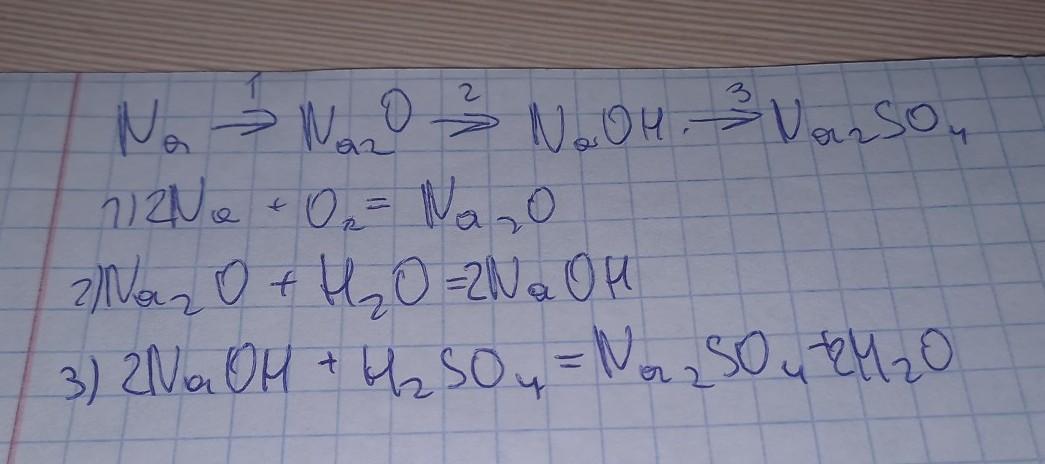 Na →¹ Na₂O →² NaOH. →³ Na₂SO₄
1) 2Na + O₂ = Na₂O
2) Na₂O + H₂O = 2NaOH
3) 2NaOH + H₂SO₄ = Na₂SO₄ + 2H₂O